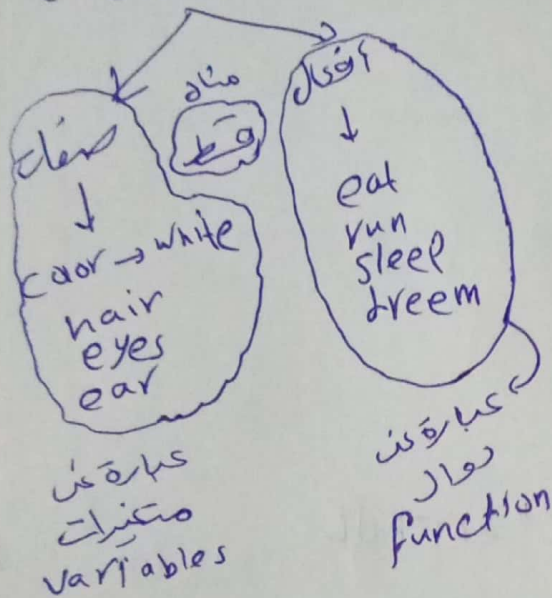 صفات
color → white
hair
eyes
ear
عبارة عن
متغيرات
variables
مثال
قط
أفعال
eat
run
sleep
dreem
عبارة عن
دوال
function